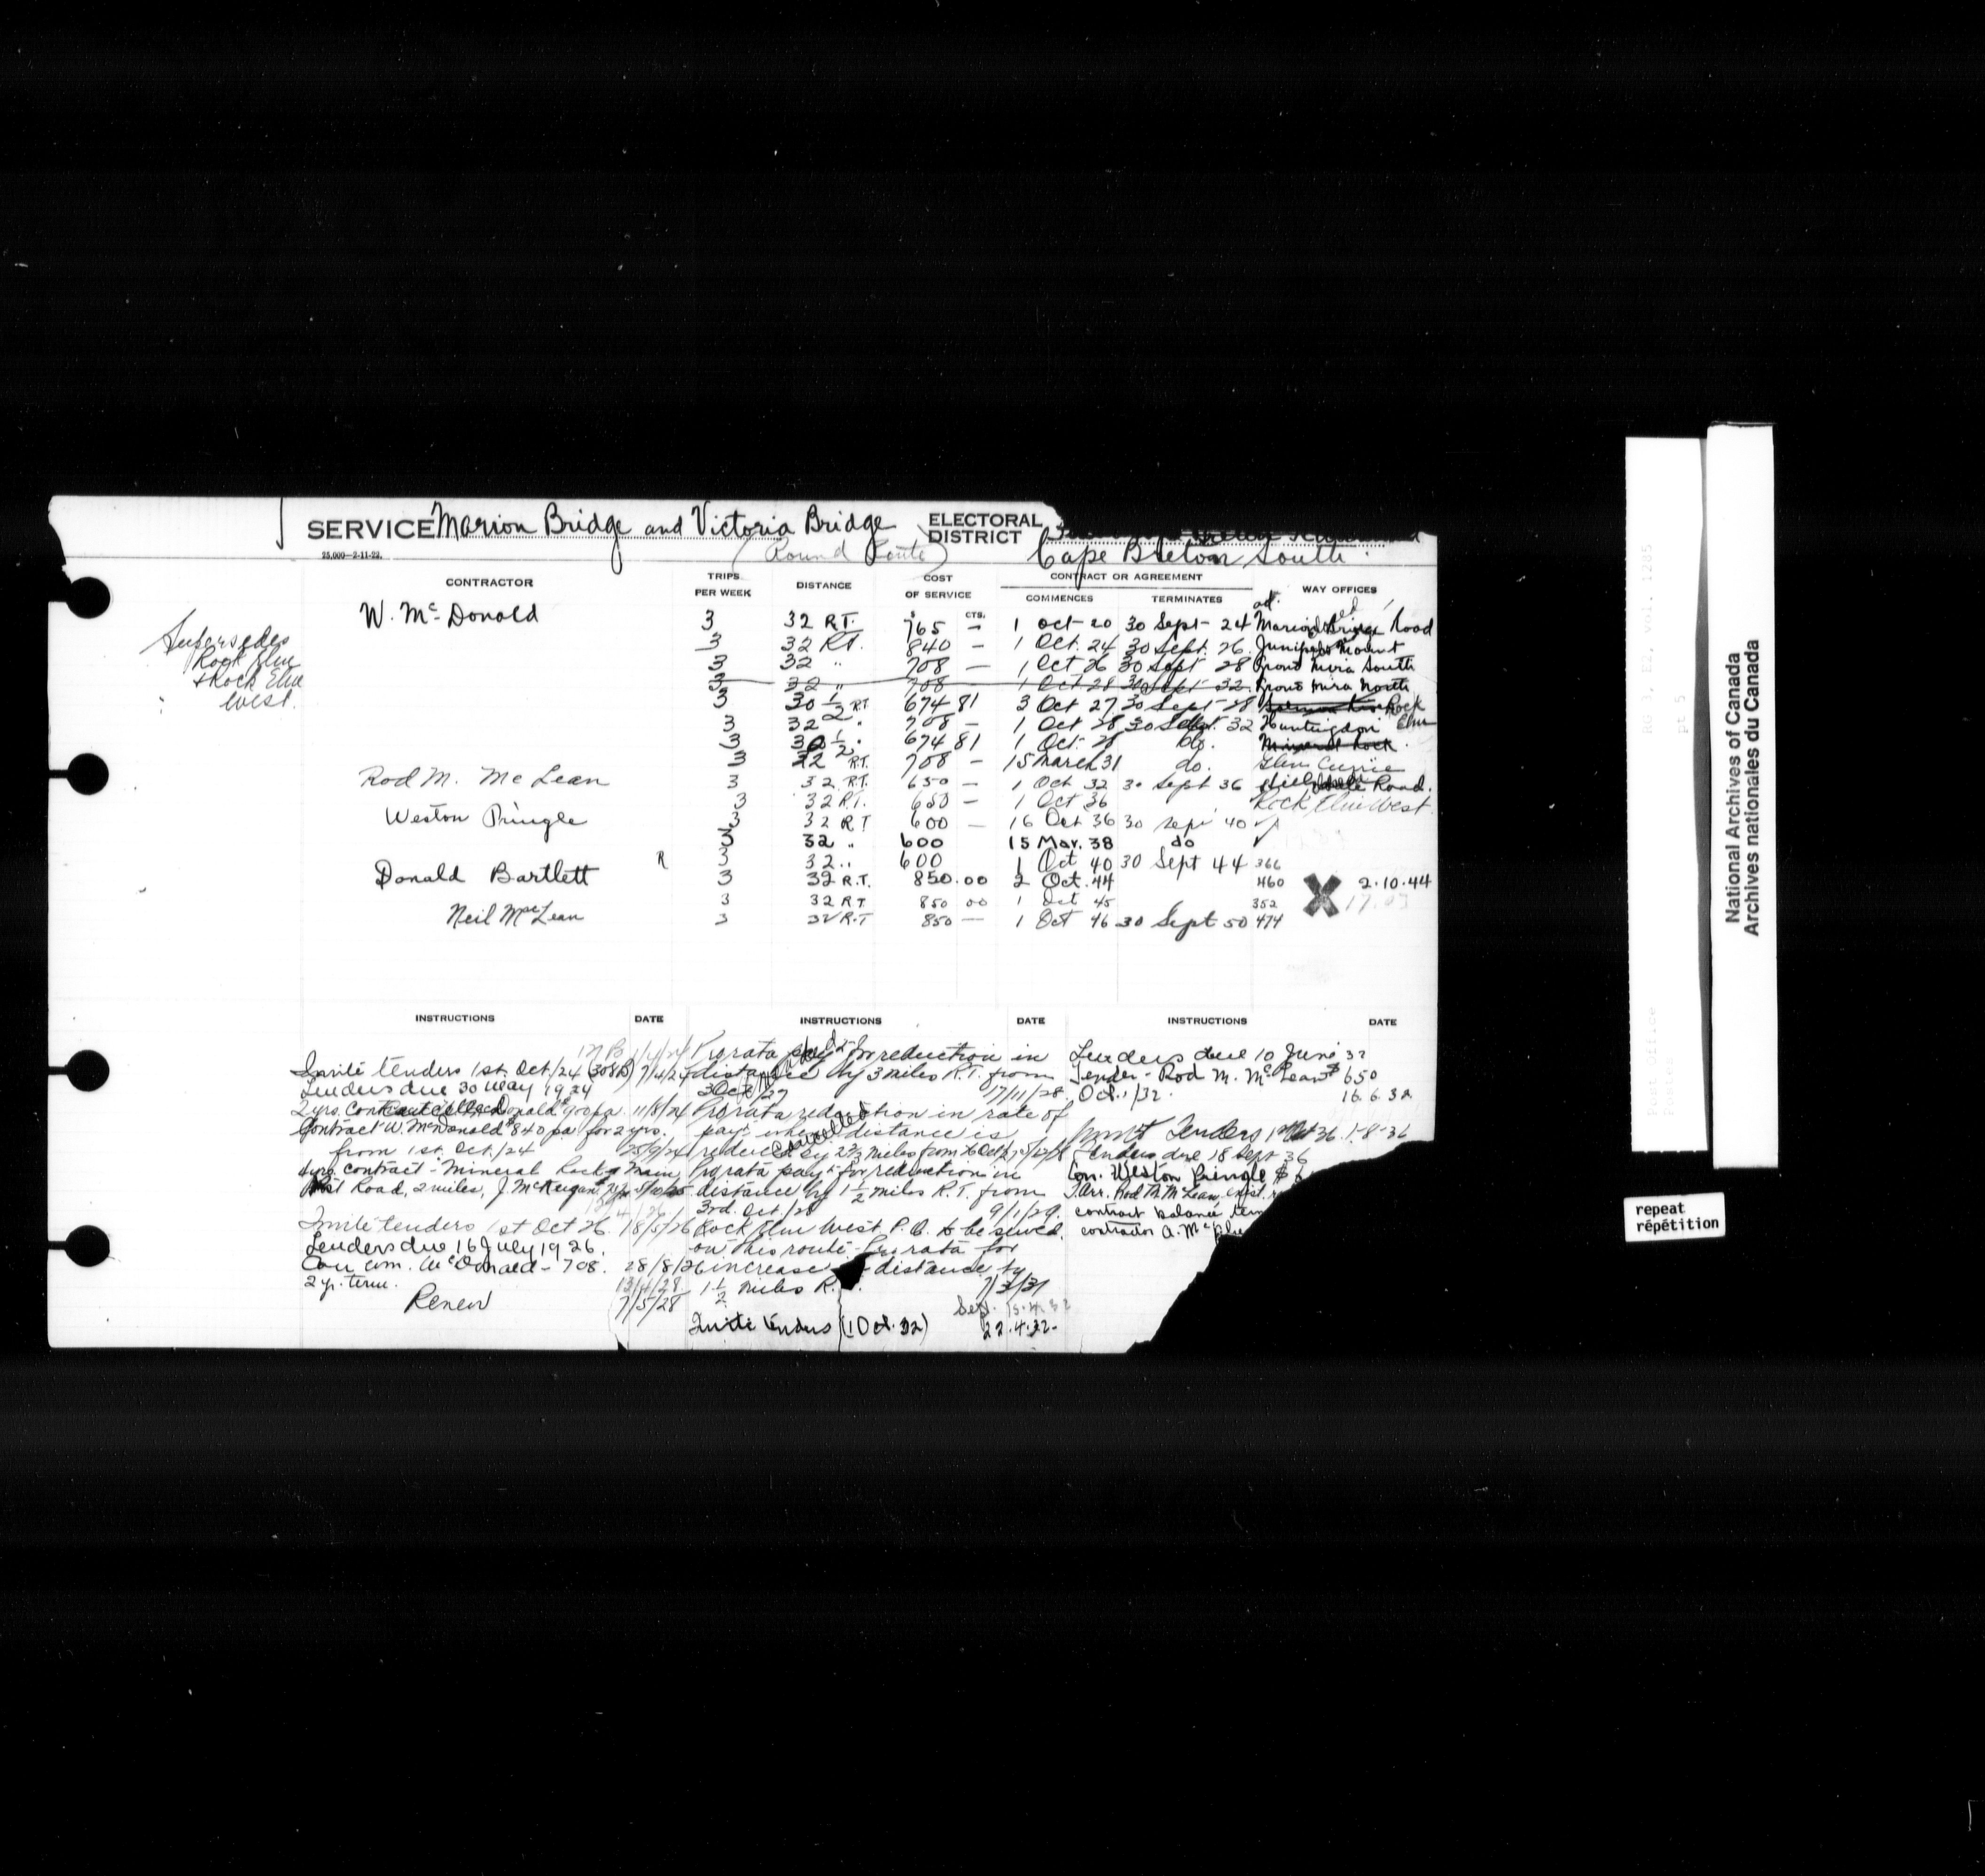 SERVICE Marion Bridge and Victoria Bridge ELECTORAL DISTRICT
25,000—2-11-22.
(Round Route) Cape Breton South
CONTRACTOR TRIPS PER WEEK DISTANCE COST OF SERVICE CONTRACT OR AGREEMENT WAY OFFICES
COMMENCES TERMINATES
$ CTS.
Supersedes
Rock Elm
& Rock Elm
West.
W. McDonald 3 32 R.T. 765 — 1 Oct - 20 30 Sept - 24 Marion Bridge Road
3 32 R.T. 840 — 1 Oct. 24 30 Sept. 26 Juniper Mount
3 32 " 708 — 1 Oct 26 30 Sept 28 Grand Mira South
3 32 " 708 — 1 Oct 28 30 Sept 32 Grand Mira North
3 30 1/2 RT 674 81 3 Oct 27 30 Sept - 28 Rock Elm
3 32 " 708 — 1 Oct 28 30 Sept. 32 Huntingdon
3 30 1/2 " 674 81 1 Oct. 28 do. Mineral Rock
3 32 R.T. 708 — 15 March 31 do. Glen Currie
Rod M. McLean 3 32 R.T. 650 — 1 Oct 32 30 Sept 36 Road.
3 32 R.T. 650 — 1 Oct 36 Rock Elm West.
Weston Pringle 3 32 RT 600 — 16 Oct 36 30 Sept 40
3 32 " 600 15 Mar. 38 do
R 3 32 " 600 1 Oct 40 30 Sept 44 366
Donald Bartlett 3 32 R.T. 850.00 2 Oct. 44 460 X 2.10.44
3 32 RT 850 00 1 Oct 45 352
Neil MacLean 3 32 R.T 850 — 1 Oct 46 30 Sept 50 474
INSTRUCTIONS DATE INSTRUCTIONS DATE INSTRUCTIONS DATE
Invite tenders 1st Oct/24 (308B) 7/4/24
Tenders due 30 May 1924
2 yrs. Contract McDonald $900 pa. 11/8/24
Contract W. McDonald $840 pa for 2 yrs.
from 1st. Oct./24 25/9/24
4 yrs. contract - Mineral Rock & Main
Post Road, 2 miles, J. McKeigan
Invite tenders 1st Oct 26. 18/5/26
Tenders due 16 July 1926.
Con Wm. McDonald - 708. 28/8/26
2 yr. term. 13/4/28
Renew 7/5/28
Prorata pay for reduction in
distance by 3 miles R.T. from
3 Oct/27 17/11/28
Prorata reduction in rate of
pay when distance is
reduced by 2 2/3 miles from
Cancelled
Prorata pay for reduction in
distance by 1 1/2 miles R.T. from
3rd. Oct./28 9/1/29.
Rock Elm West P.O. to be served
on this route - Prorata for
increase distance by
1 1/2 miles R.T. 7/3/31
Sep. 15.4.32
Invite tenders (1 Oct. 32) 22.4.32-
Tenders due 10 June 32
Tender - Rod M. McLean $650
Oct. 1/32. 16.6.32
Invite Tenders 1 Oct 36. 1-8-36
Tenders due 18 Sept 36
Con. Weston Pringle $
T.arr. Rod M. McLean, exist.
contract balance term
contractor A. Mc
National Archives of Canada
Archives nationales du Canada
RG 3, E2, vol. 1285
pt 5
Post Office
repeat
répétition